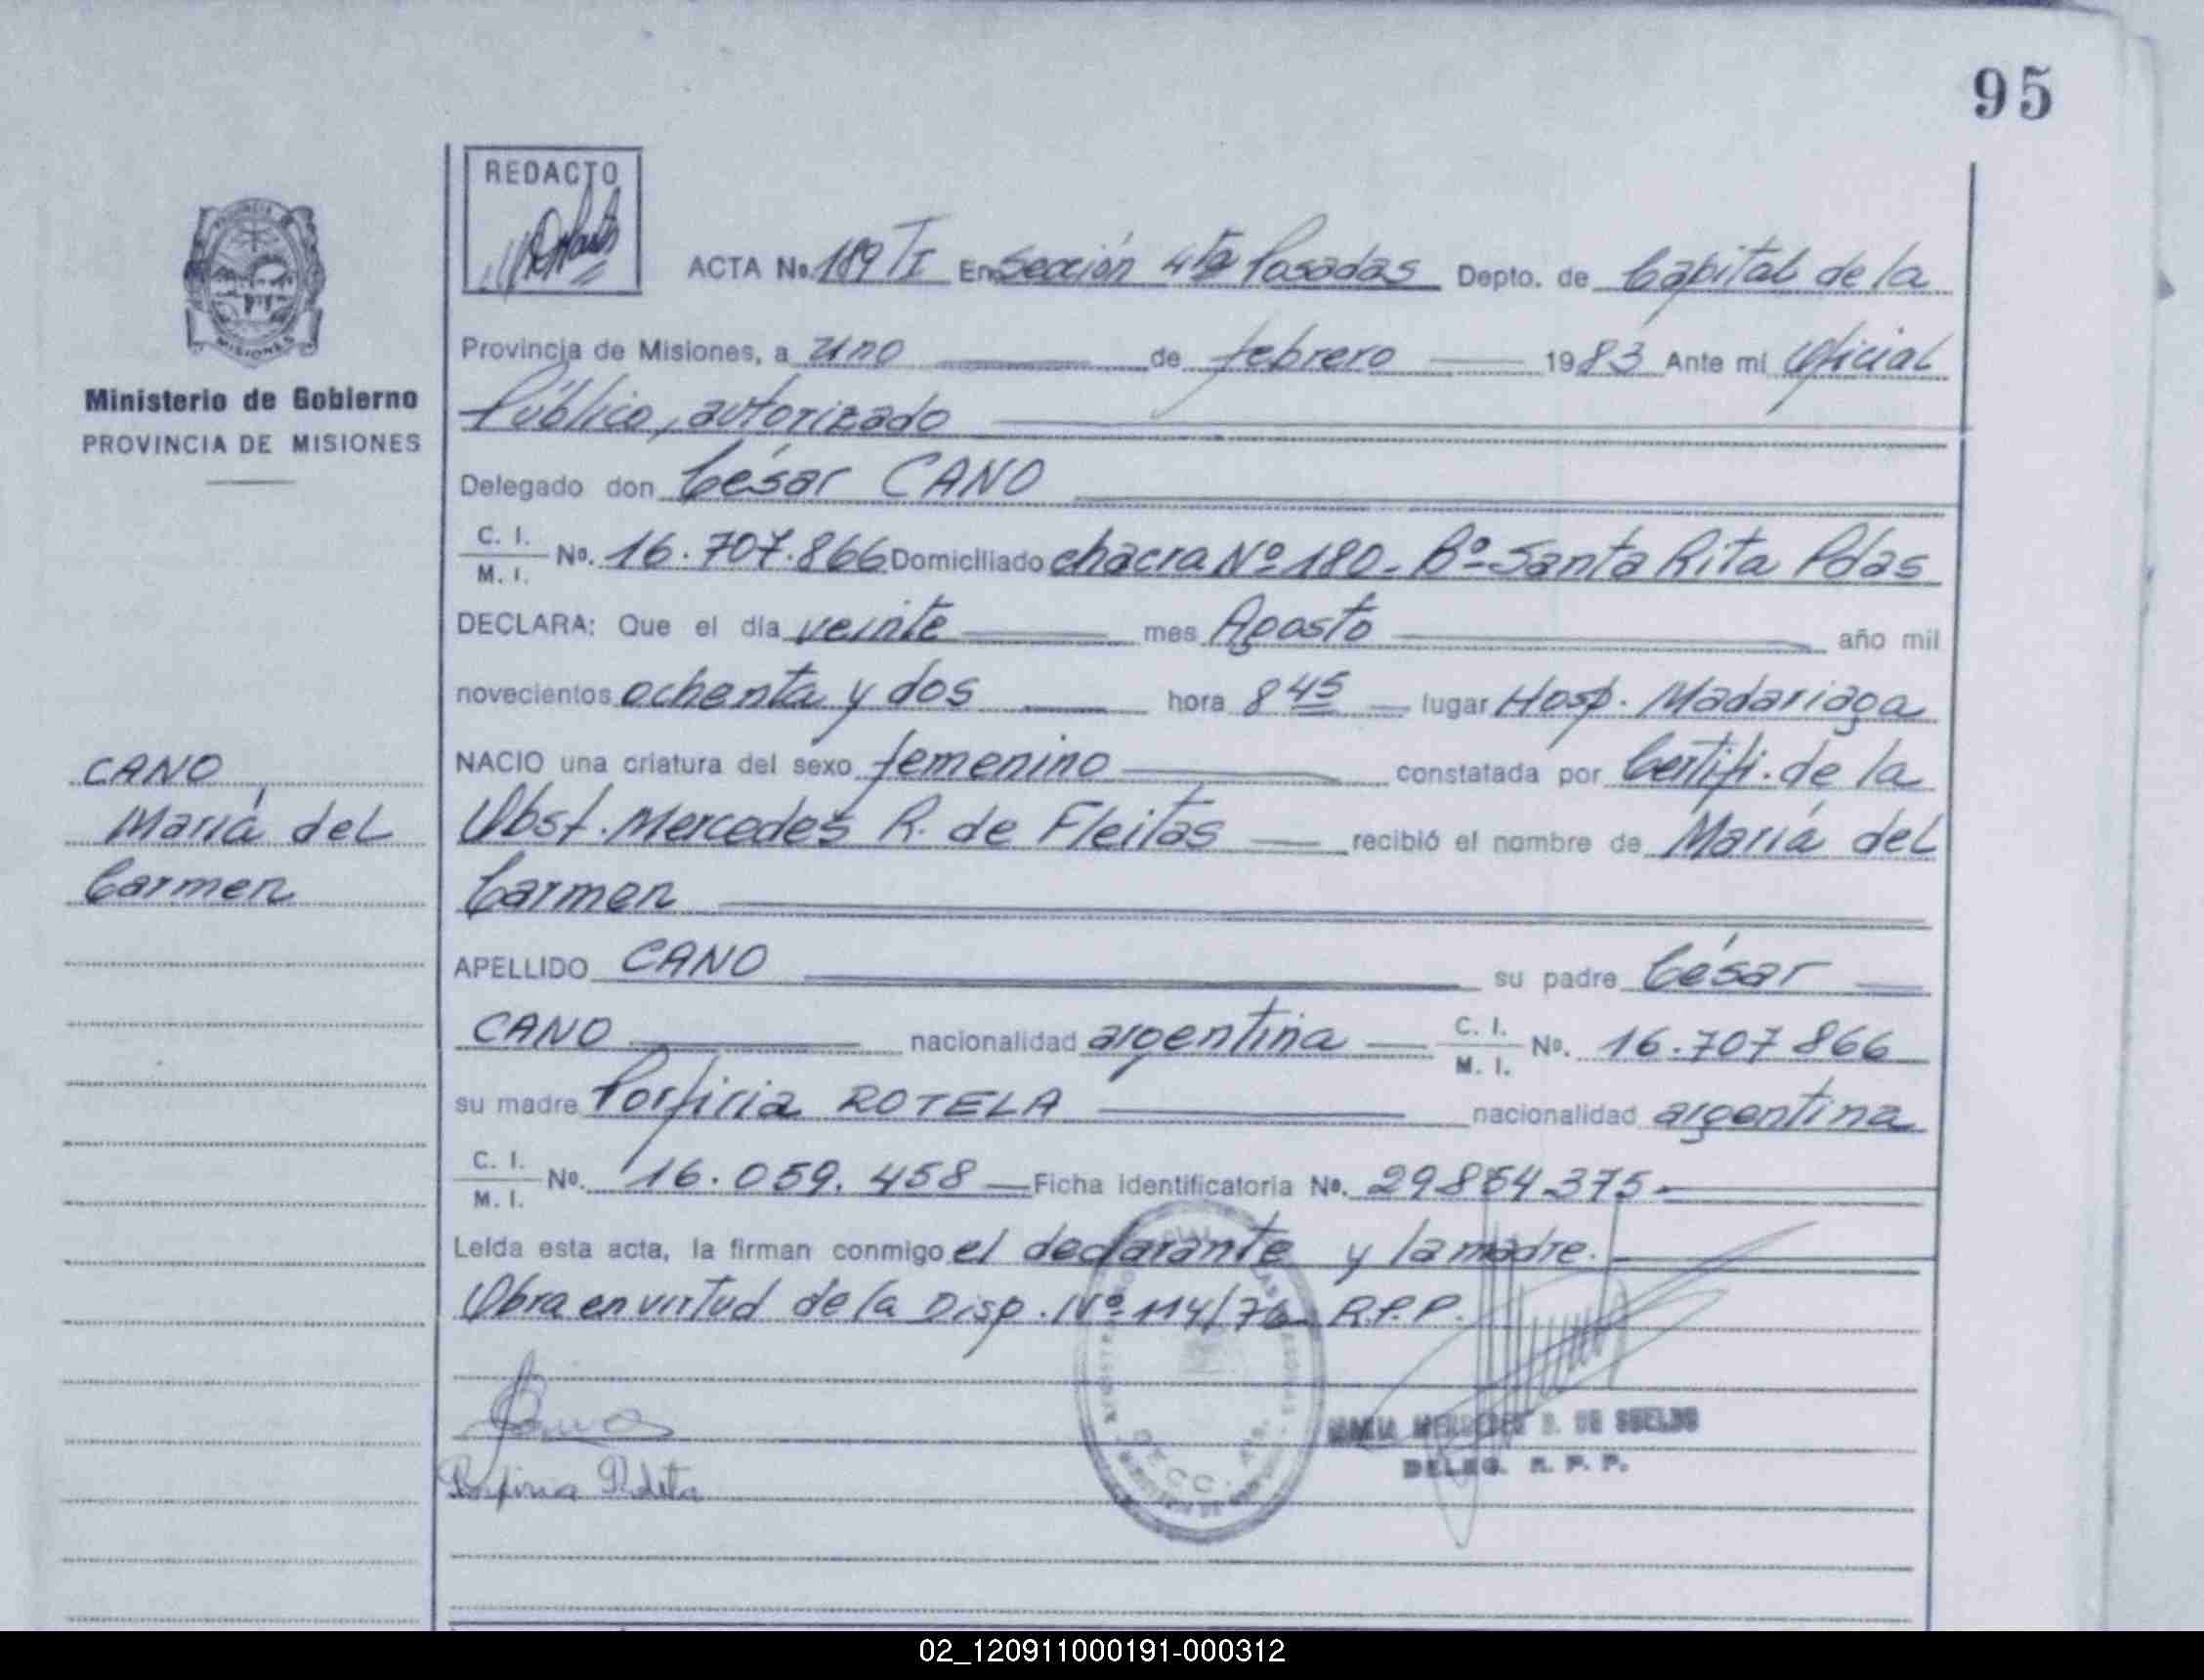 95
REDACTO
ACTA No. 189 T I En Sección 4ta Posadas Depto. de Capital de la
Provincia de Misiones, a uno de febrero 1983 Ante mi Oficial
Público, autorizado
Delegado don César CANO
C. I. / M. I. No. 16.707.866 Domiciliado chacra Nº 180 - Bº Santa Rita Pdas
DECLARA: Que el día veinte mes Agosto año mil
novecientos ochenta y dos hora 8 45 lugar Hosp. Madariaga
NACIO una criatura del sexo femenino constatada por Certifi. de la
Obst. Mercedes R. de Fleitas recibió el nombre de María del
Carmen
APELLIDO CANO su padre César
CANO nacionalidad argentina C. I. / M. I. No. 16.707 866
su madre Porfiria ROTELA nacionalidad argentina
C. I. / M. I. No. 16.059.458 Ficha identificatoria No. 29854375
Leída esta acta, la firman conmigo el declarante y la madre.
Obra en virtud de la Disp. Nº 114/76 R.P.P.
DE SUELDO
DELEG. R. P. P.
SECC. 4ta.
MISIONES
Ministerio de Gobierno
PROVINCIA DE MISIONES
CANO
María del
Carmen
02_120911000191-000312